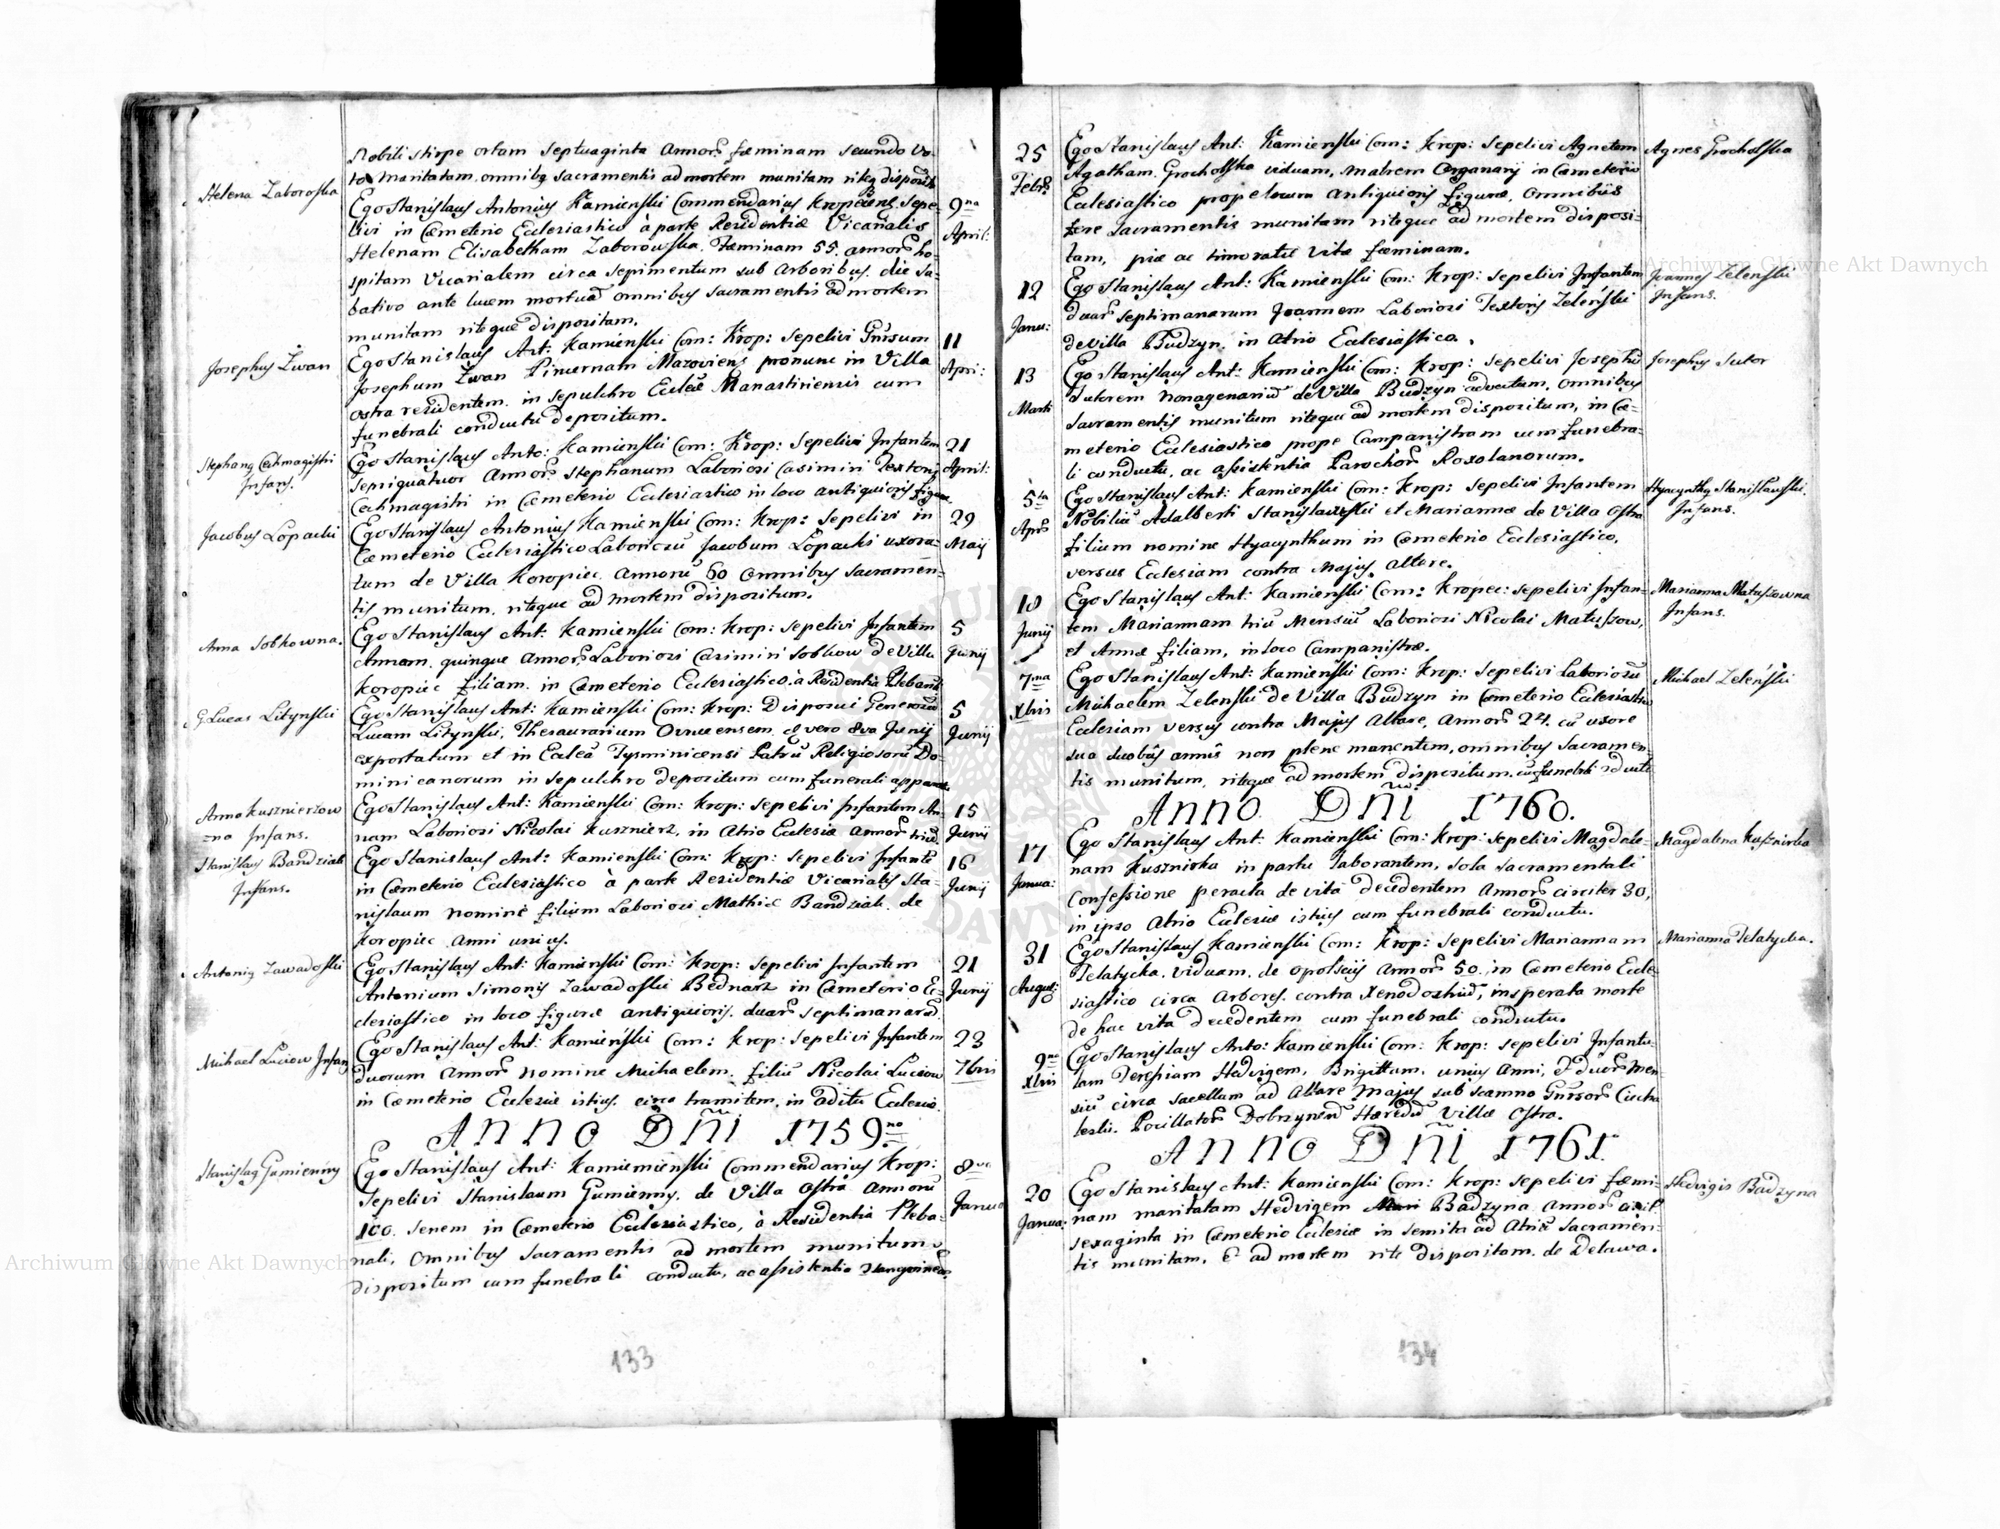 Nobili stirpe ortam septuaginta Annorũ fœminam secundo vo-
to Maritatam, omnibus Sacramentis ad mortem munitam riteq disposit
Helena Zaborofska
Ego Stanislaus Antonius Kamienski Commendarius Kropecens. Sepe- 9na
livi in Cœmeterio Ecclesiastico à parte Residentiæ Vicarialis April:
Helenam Elisabetham Zaborowska Fæminam 55. annorũ ho-
spitam Vicarialem circa sepimentum sub Arboribus, die Sa-
bativo ante lucem mortuã omnibus Sacramentis ad mortem
munitam riteque dispositam.
Josephus Zwan
Ego Stanislaus Ant: Kamienski Com: Krop: Sepelivi Gñrsum 11
Josephum Zwan Pincernam Mazoviens. pronunc in Villa Apri:
Ostra residentem in sepulchro Ecclæ Manastiriensis cum
funebrali conductu depositum.
Stephanus Cechmagistri
Infans.
Ego Stanislaus Anto: Kamienski Com: Krop: Sepelivi Infantem 21
Semiquatuor Annorũ Stephanum Laboriosi Casimiri Textoris April:
Cechmagistri in Cœmeterio Ecclesiastico in loco antiquioris figuræ
Jacobus Łopacki
Ego Stanislaus Antonius Kamienski Com: Krop: Sepelivi in 29
Cæmeterio Ecclesiastico Laboriosũ Jacobum Łopacki uxora- Maij
tum de Villa Koropiec, Annorũ 60 omnibus Sacramen-
tis munitum, riteque ad mortem dispositum.
Anna Sobkowna.
Ego Stanislaus Ant: Kamienski Com: Krop: Sepelivi Infantem 5
Annam quinque Annorũ Laboriosi Casimiri Sobkow de Villa Junij
Koropiec filiam in Cæmeterio Ecclesiastico à Residentia Plebana
G. Lucas Litynski
Ego Stanislaus Ant: Kamienski Com: Krop: Disposui Generosũ 5
Lucam Litynski, Thesaurarium Owruensem, vero 8va Junij Junij
exportatum et in Ecclâ Tysminicensi Patrũ Religiosorũ Do-
minicanorum in sepulchro depositum cum funerali apparatu
Anna Kusznierzow
zna Infans.
Ego Stanislaus Ant: Kamienski Com: Krop: Sepelivi Infantem An- 15
nam Laboriosi Nicolai Kusznierz, in Atrio Ecclesiæ Annorũ triũ Junij
Stanislaus Bandziak
Infans.
Ego Stanislaus Ant: Kamienski Com: Krop: Sepelivi Infantẽ 16
in Cæmeterio Ecclesiastico à parte Residentiæ Vicarialis Sta- Junij
nislaum nomine filium Laboriosi Mathiæ Bandziak de
Koropiec Anni unius.
Antonius Zawadoski
Ego Stanislaus Ant: Kamienski Com: Krop: Sepelivi Infantem 21
Antonium Simonis Zawadoski Bednarz in Cæmeterio Ec- Junij
clesiastico in loco figuræ antiquioris, duarũ septimanarũ.
Michael Luciow Infans
Ego Stanislaus Ant: Kamienski Com: Krop: Sepelivi Infantem 23
duorum Annorũ nomine Michaelem, filiũ Nicolai Luciow 7bris
in Cæmeterio Ecclesiæ istius, circa tramitem, in aditu Ecclesiæ.
ANNO Dñi 1759no
Stanislaus Gumienny
Ego Stanislaus Ant: Kamiemienski Commendarius Krop: 8va
Sepelivi Stanislaum Gumienny, de Villa Ostra Annorũ Janua
100. Senem in Cæmeterio Ecclesiastico, à Residentia Pleba-
nali, omnibus Sacramentis ad mortem munitum
dispositum cum funebrali conductu, ac assistentia Sanguineorũ.
133
25 Ego Stanislaus Ant: Kamienski Com: Krop: Sepelivi Agnetem Agnes Grocholska
Febrũ Agatham Grocholska viduam, matrem Organarij in Cæmeterio
Ecclesiastico prope locum antiquioris figuræ, omnibus
fere Sacramentis munitam riteque ad mortem disposi-
tam, piæ ac timoratæ vitæ fœminam.
12 Ego Stanislaus Ant: Kamienski Com: Krop: Sepelivi Infantem Joannes Zelenski
Infans.
Janu: duar Septimanarum Joannem Laboriosi Textoris Zeleński
de Villa Budzyn in Atrio Ecclesiastico.
13 Ego Stanislaus Ant: Kamienski Com: Krop: Sepelivi Josephũ Josephus Sutor
Marti Sutorem nonagenariũ de Villa Budzyn advectum, omnibus
Sacramentis munitum riteque ad mortem dispositum, in Cæ-
meterio Ecclesiastico prope Campanistram cum funebra-
li conductu, ac assistentia Parochorũ Roxolanorum.
5ta Ego Stanislaus Ant: Kamienski Com: Krop: Sepelivi Infantem Hyacynthus Stanislauski.
Infans.
Apri Nobiliũ Adalberti Stanislawski et Mariannæ de Villa Ostra
filium nomine Hyacynthum in Cæmeterio Ecclesiastico,
versus Ecclesiam contra Majus Altare.
10 Ego Stanislaus Ant: Kamienski Com: Kropec: Sepelivi Infan- Marianna Matuszowna
Infans.
Junij tem Mariannam triũ Mensiũ Laboriosi Nicolai Matuszow,
et Annæ filiam, in loco Campanistræ.
7ma Ego Stanislaus Ant: Kamienski Com: Krop: Sepelivi Laboriosũ Michael Zeleński
Xbris Michaelem Zelenski de Villa Budzyn in Cæmeterio Ecclesiastico
Ecclesiam versus contra Majus Altare, Annorũ 24, cũ uxore
sua duobus annis non plene manentem, omnibus Sacramen-
tis munitum, riteque ad mortem dispositum
ANNO Dñi 1760.
17 Ego Stanislaus Ant: Kamienski Com: Krop: Sepelivi Magdale- Magdalena Kusznirka
Janua: nam Kusznirka in partu laborantem, sola Sacramentali
Confessione peracta de vita decedentem Annorũ circiter 30,
in ipso Atrio Ecclesiæ istius cum funebrali conductu.
31 Ego Stanislaus Kamienski Com: Krop: Sepelivi Mariannam Marianna Telatycka.
August: Telatycka, viduam, de Opolscij Annorũ 50. in Cæmeterio Eccle-
siastico circa Arbores, contra Xenodochiũ, insperata morte
de hac vita decedentem cum funebrali conductu.
9na Ego Stanislaus Anto: Kamienski Com: Krop: Sepelivi Infantu-
Xbris lam Theresiam Hedvigem, Brigittam, unius Anni, & duorũ Men-
siũ circa sacellum ad Altare Majus sub scamno Gñrsorũ Ciecha
leski Pocillatorũ Dobrzynensiũ Hæredũ Villæ Ostra.
ANNO Dñi 1761
20 Ego Stanislaus Ant: Kamienski Com: Krop: Sepelivi fæmi- Hedvigis Badzyna
Janua: nam maritatam Hedvigem Badzyna Annorũ
sexaginta in Cæmeterio Ecclesiæ in semita ad Atriũ Sacramen-
tis munitam, & ad mortem rite dispositam de Delawa.
134
Archiwum Główne Akt Dawnych
Archiwum Główne Akt Dawnych